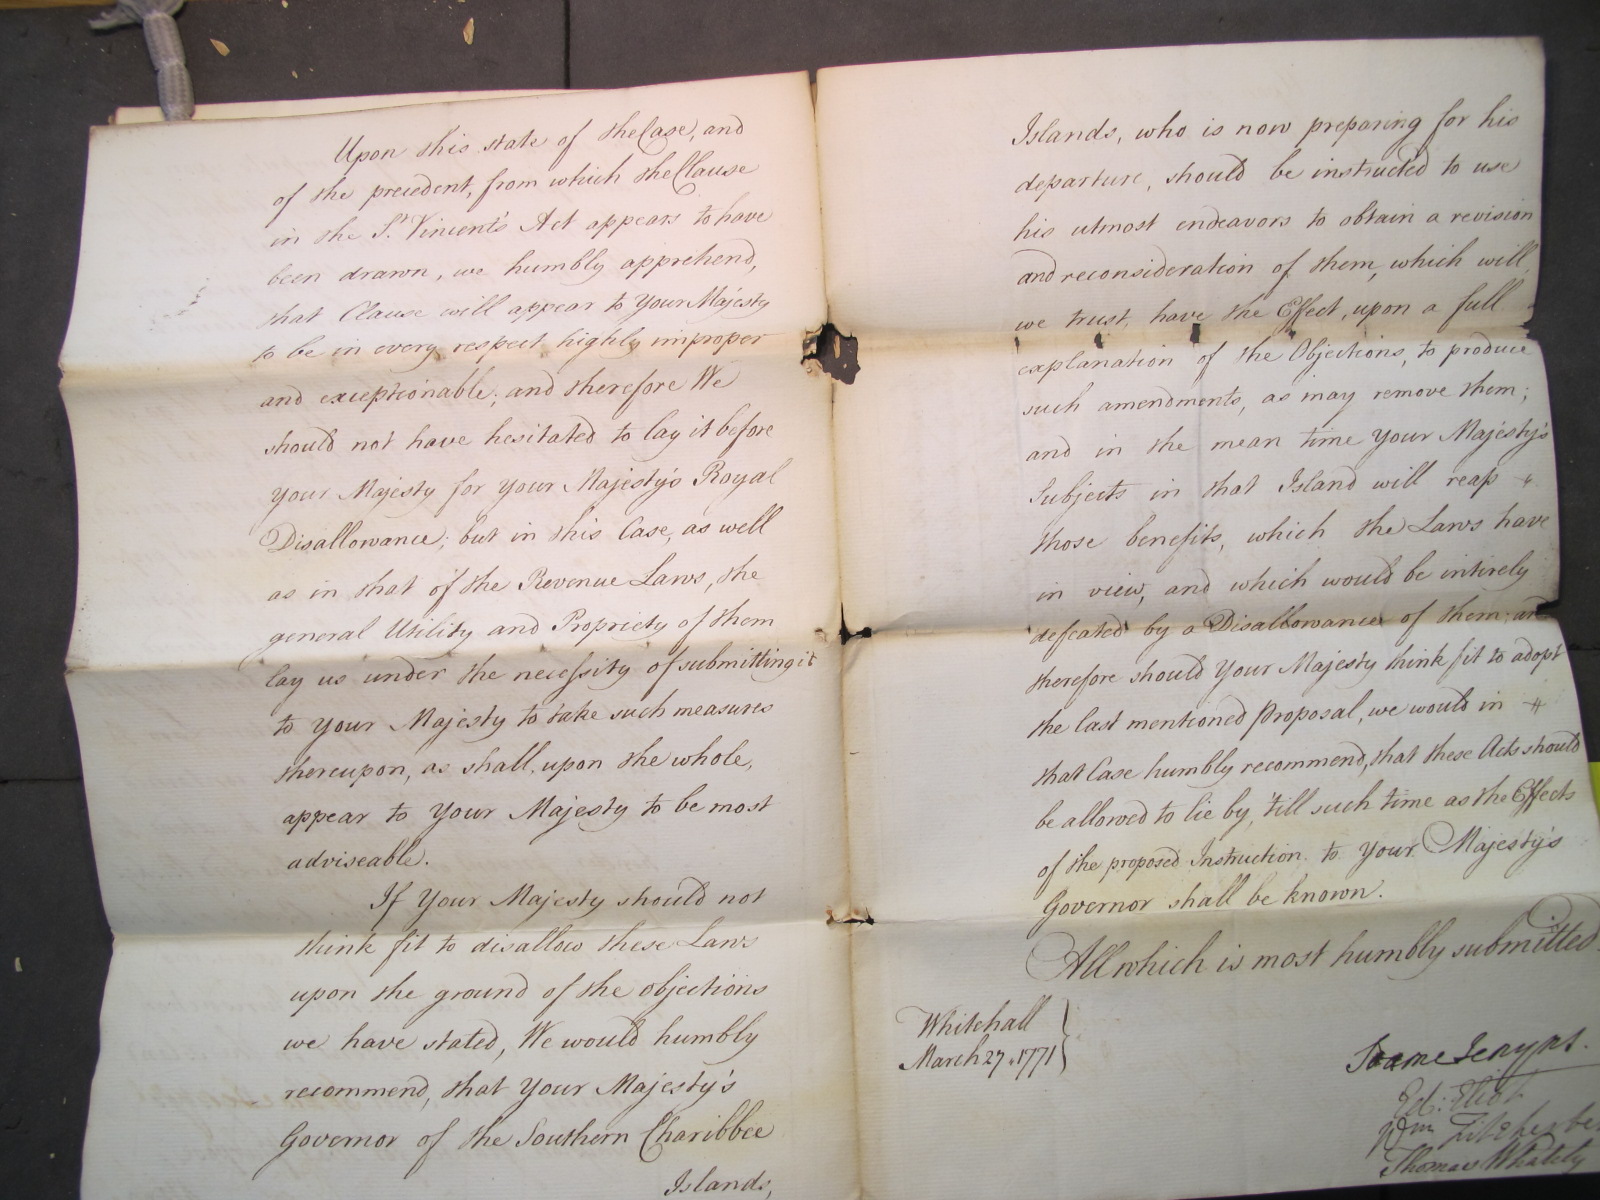 Upon this state of the Case, and
of the precedent, from which the Clause
in the St. Vincent's Act appears to have
been drawn, we humbly apprehend,
that Clause will appear to Your Majesty
to be in every respect highly improper
and exceptionable; and therefore We
should not have hesitated to lay it before
Your Majesty for Your Majesty's Royal
Disallowance; but in this Case, as well
as in that of the Revenue Laws, the
general Utility and Propriety of them
lay us under the necessity of submitting it
to Your Majesty to take such measures
thereupon, as shall, upon the whole,
appear to Your Majesty to be most
adviseable.
If Your Majesty should not
think fit to disallow these Laws
upon the ground of the objections
we have stated, We would humbly
recommend, that Your Majesty's
Governor of the Southern Charibbee
Islands,
Islands, who is now preparing for his
departure, should be instructed to use
his utmost endeavors to obtain a revision
and reconsideration of them, which will,
we trust, have the Effect, upon a full
explanation of the Objections, to produce
such amendments, as may remove them;
and in the mean time Your Majesty's
Subjects in that Island will reap
those benefits, which the Laws have
in view, and which would be intirely
defeated by a Disallowance of them; and
therefore should Your Majesty think fit to adopt
the last mentioned Proposal, we would in
that Case humbly recommend, that these Acts should
be allowed to lie by, 'till such time as the Effects
of the proposed Instruction to Your Majesty's
Governor shall be known.
All which is most humbly submitted
Whitehall
March 27. 1771
Soame Jenyns.
Ed: Eliot
Wm Fitzherbe
Thomas Whately